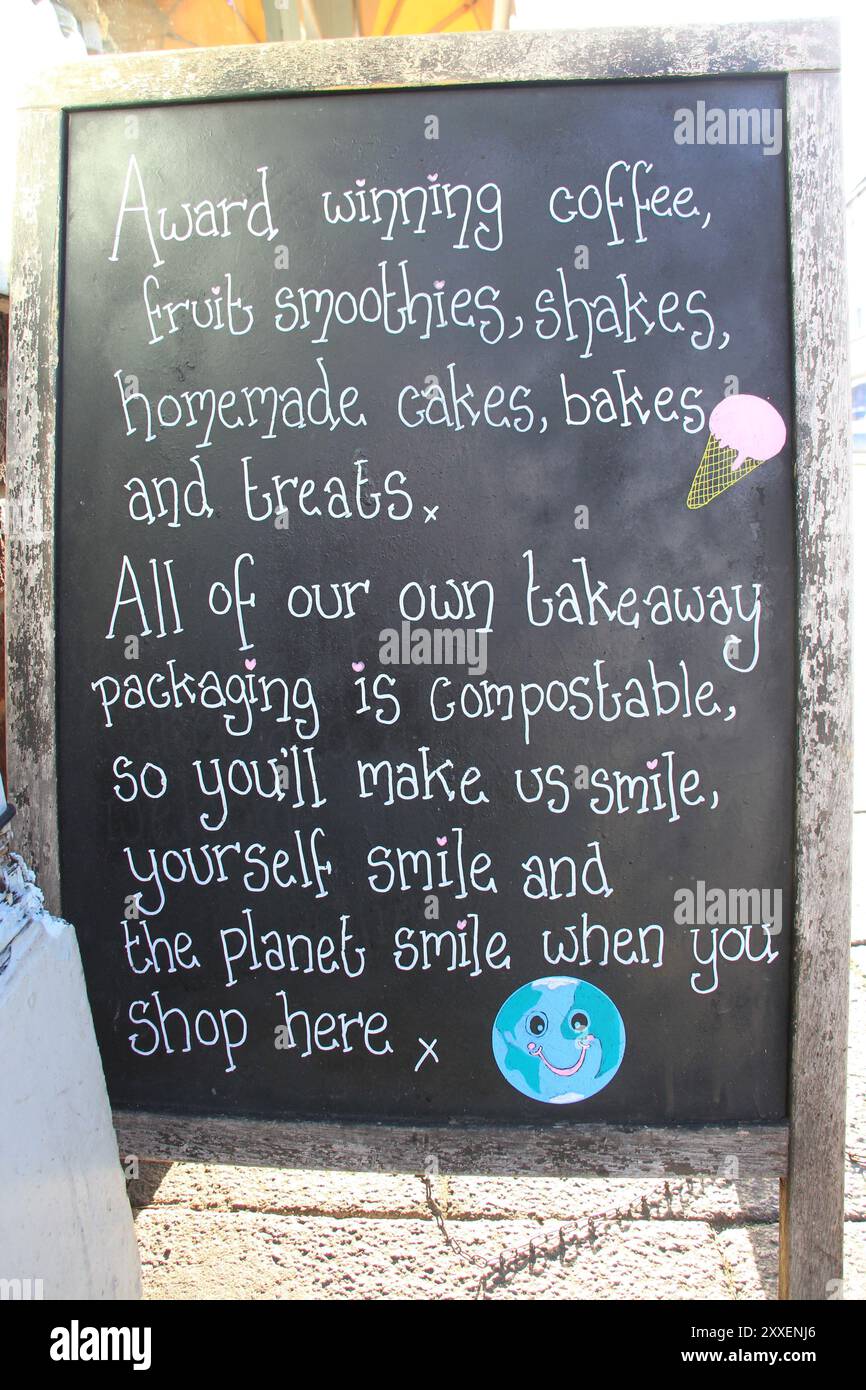 Award winning coffee,
fruit smoothies, shakes,
homemade cakes, bakes
and treats. x
All of our own takeaway
packaging is compostable,
so you'll make us smile,
yourself smile and
the planet smile when you
shop here x
alamy
Image ID: 2XXENJ6
www.alamy.com